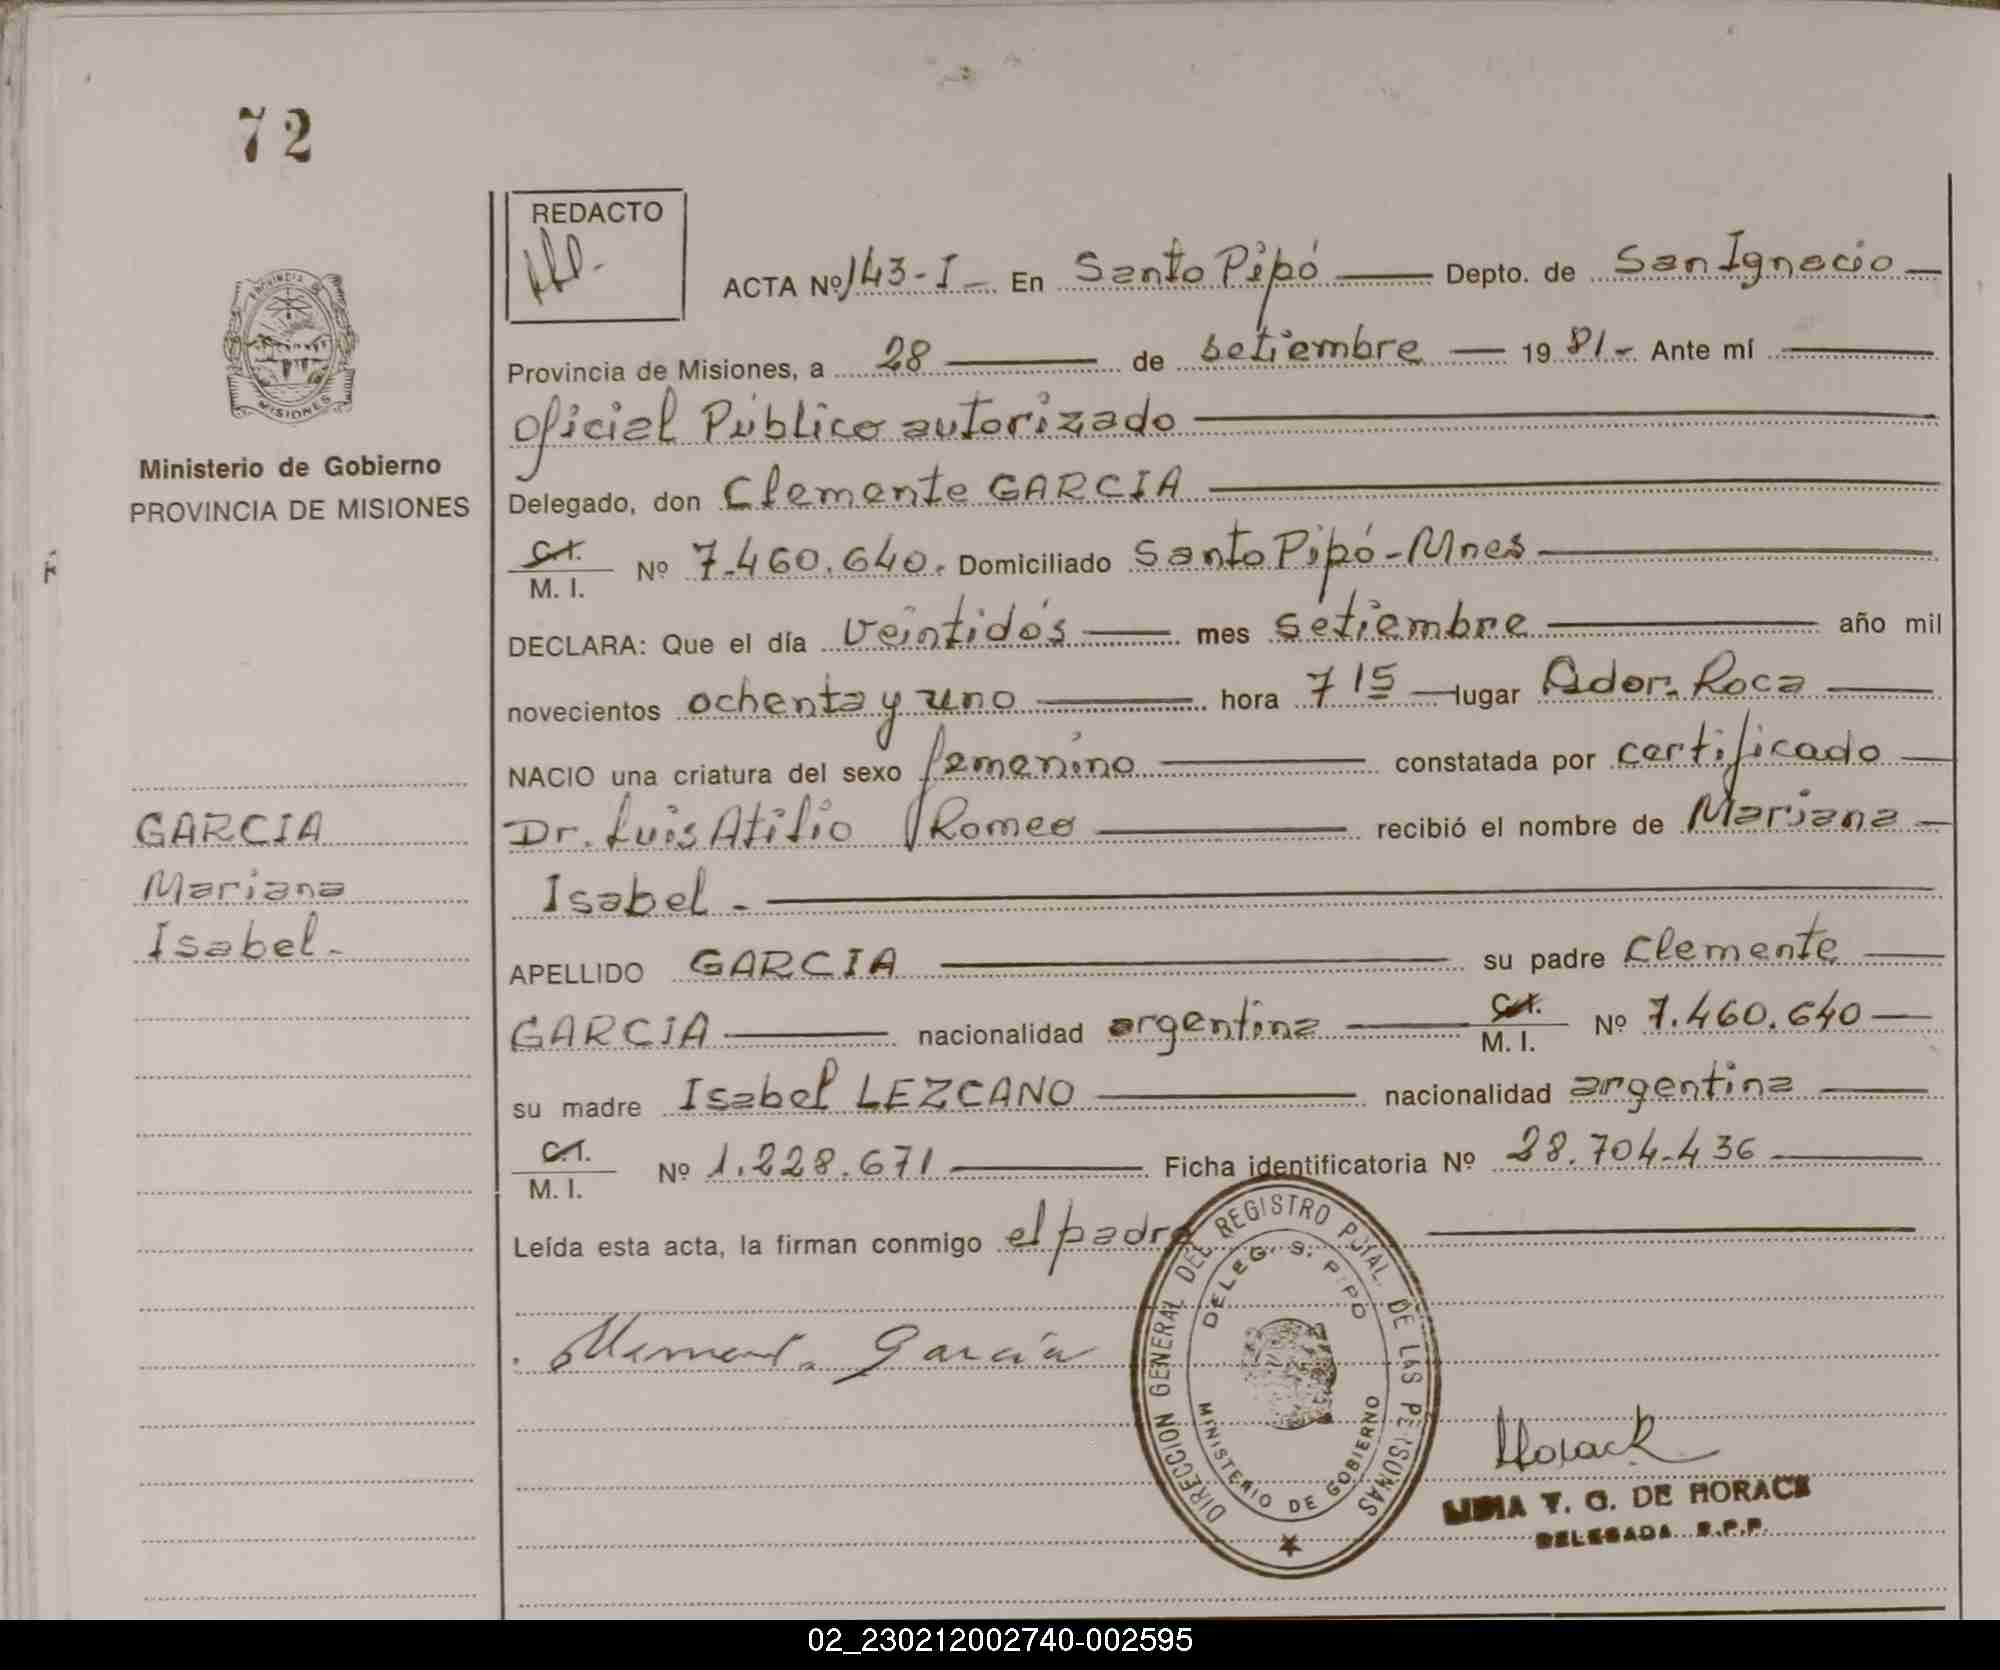 72
REDACTO
ACTA Nº 143-I - En Santo Pipó Depto. de San Ignacio
Provincia de Misiones, a 28 de setiembre 1981- Ante mí
oficial Público autorizado
Delegado, don Clemente GARCIA
C.I. M. I. Nº 7.460.640. Domiciliado Santo Pipó-Mnes
DECLARA: Que el día veintidós mes setiembre año mil
novecientos ochenta y uno hora 7 15 lugar Gdor. Roca
NACIO una criatura del sexo femenino constatada por certificado
Dr. Luis Atilio Romeo recibió el nombre de Mariana
Isabel -
APELLIDO GARCIA su padre Clemente
GARCIA nacionalidad argentina C.I. M. I. Nº 7.460.640
su madre Isabel LEZCANO nacionalidad argentina
C.I. M. I. Nº 1.228.671 Ficha identificatoria Nº 28.704.436
Leída esta acta, la firman conmigo el padre
Clemente García
Horack
LIDIA T. G. DE HORACK
DELEGADA R.P.P.
DIRECCION GENERAL DEL REGISTRO PCIAL. DE LAS PERSONAS
DELEG. S. PIPO
MINISTERIO DE GOBIERNO
PROVINCIA DE
MISIONES
Ministerio de Gobierno
PROVINCIA DE MISIONES
GARCIA
Mariana
Isabel-
02_230212002740-002595